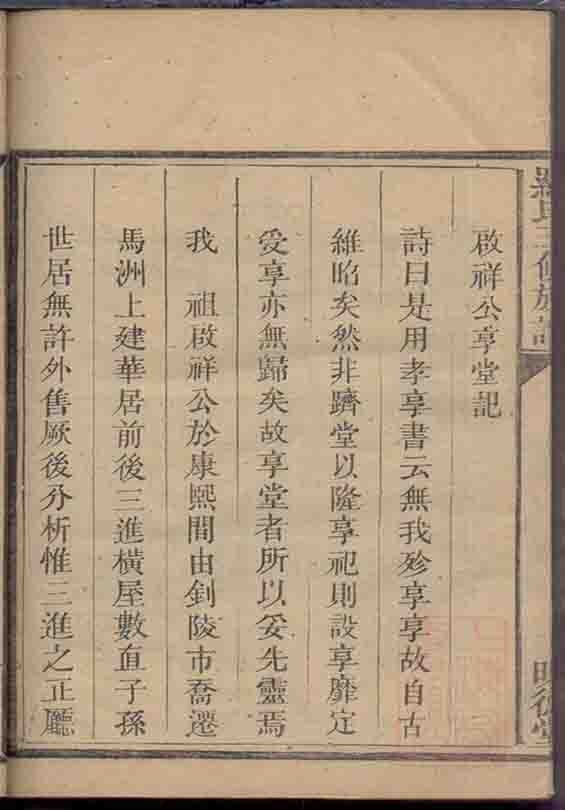 啟祥公享堂記
詩曰是用孝享書云無我殄享享故自古
維昭矣然非躋堂以隆享祀則設享靡定
受享亦無歸矣故享堂者所以妥先靈焉
我　祖啟祥公於康熙間由釗陵市喬遷
馬洲上建華居前後三進橫屋數直子孫
世居無許外售厥後分析惟三進之正廳